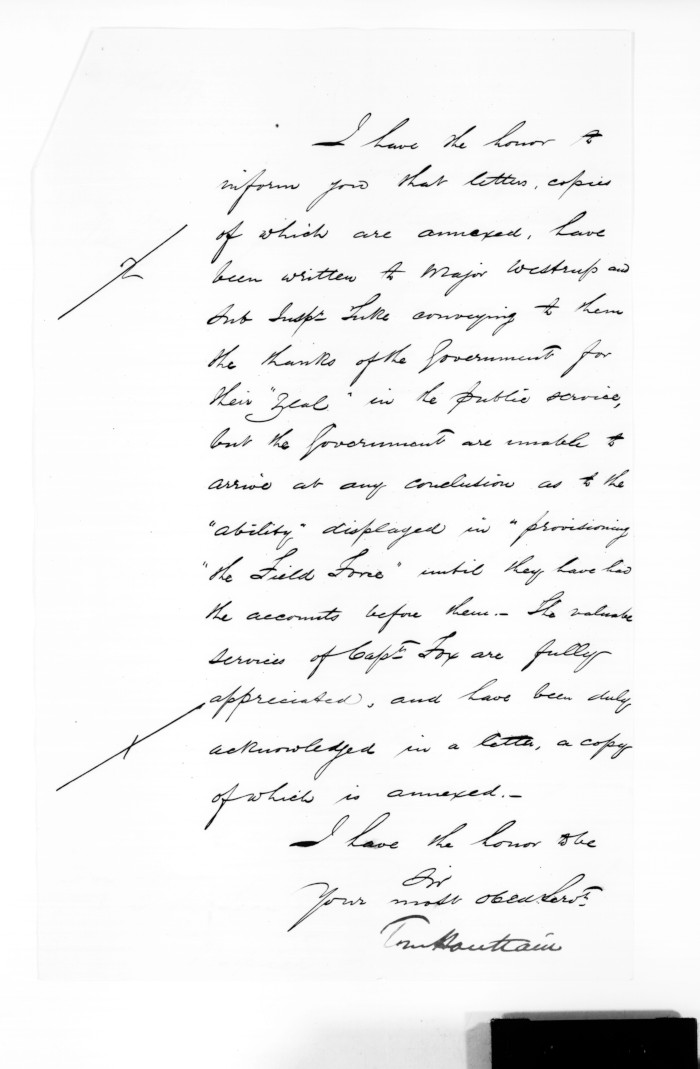 I have the honor to
inform you that letters, copies
of which are annexed, have
been written to Major Westrup and
Sub Inspr. Tuke conveying to them
the thanks of the Government for
their "Zeal" in the public service,
but the Government are unable to
arrive at any conclusion as to the
"ability" displayed in "provisioning
"the Field Force" until they have had
the accounts before them. – The valuable
services of Captn. Fox are fully
appreciated, and have been duly
acknowledged in a letter, a copy
of which is annexed. –
I have the honor to be
Sir
Your most obedt. Servt.